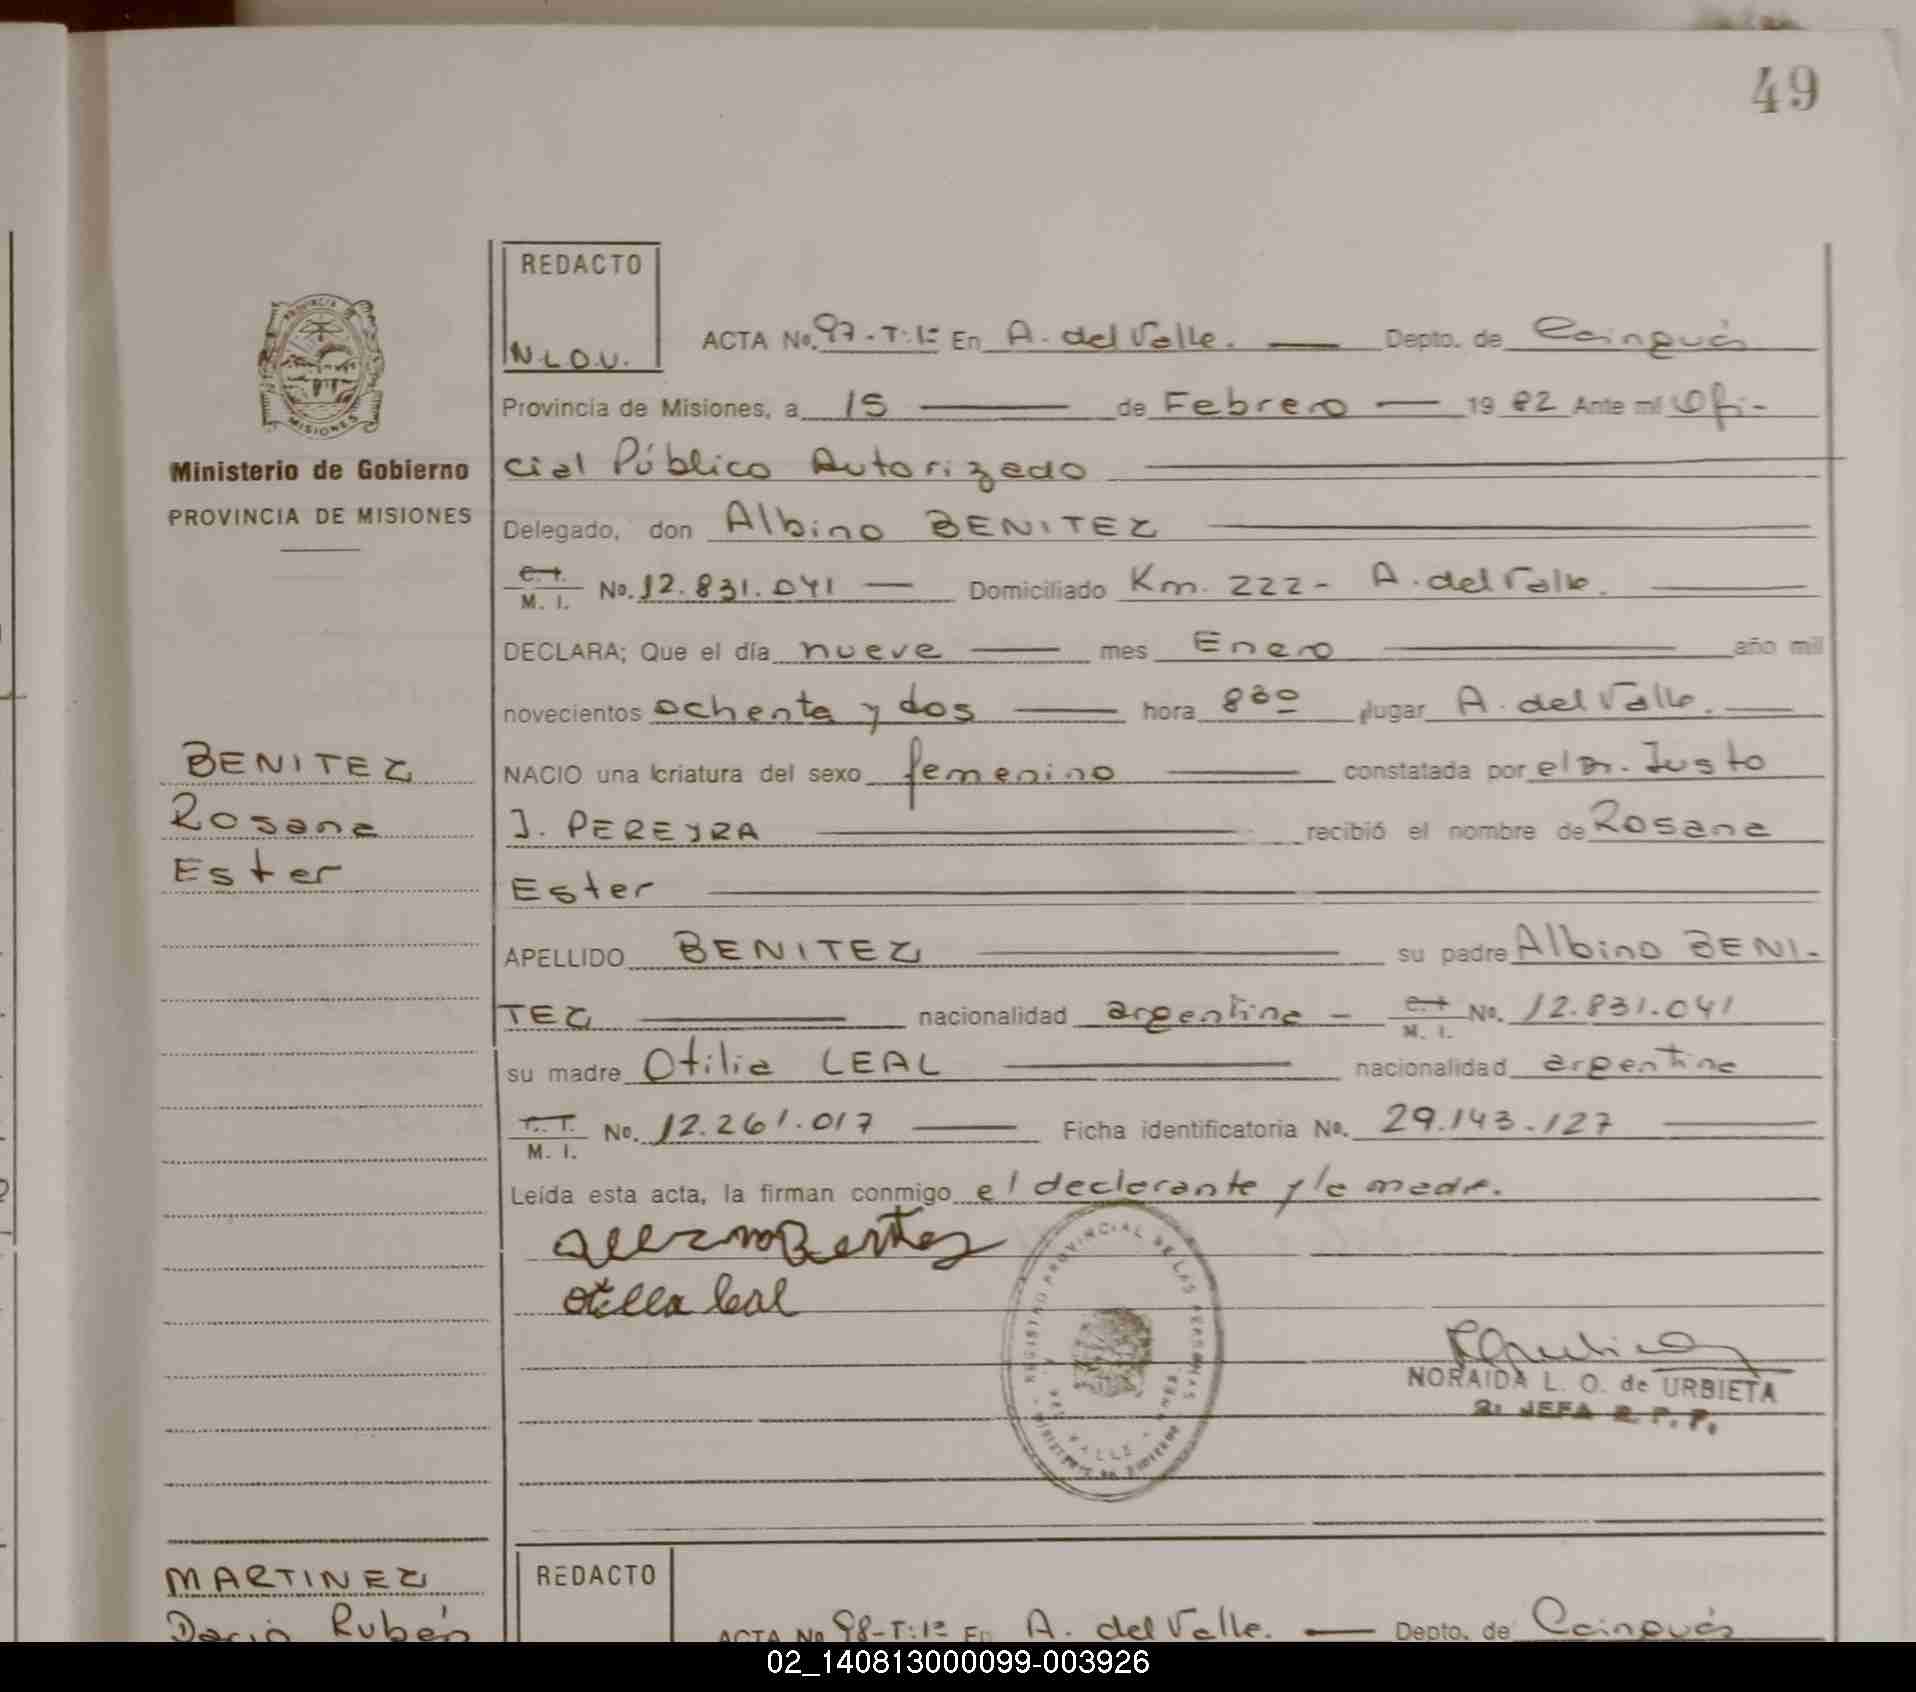 49
REDACTO
N.L.O.U.
ACTA No. 97-T:1º En A. del Valle. Depto. de Cainguás
Provincia de Misiones, a 15 de Febrero 1982 Ante mí Ofi-
cial Público Autorizado
Delegado, don Albino BENITEZ
M. I. No. 12.831.041 Domiciliado Km. 222- A. del Valle.
DECLARA; Que el día nueve mes Enero año mil
novecientos ochenta y dos hora 8³⁰ lugar A. del Valle.
NACIO una criatura del sexo femenino constatada por el Dr. Justo
J. PEREYRA recibió el nombre de Rosana
Ester
APELLIDO BENITEZ su padre Albino BENI-
TEZ nacionalidad argentina - M. I. No. 12.831.041
su madre Otilia LEAL nacionalidad argentina
M. I. No. 12.261.017 Ficha identificatoria No. 29.143.127
Leída esta acta, la firman conmigo el declarante y la madre.
otilia leal
NORAIDA L. O. de URBIETA
JEFA R. P. P.
REGISTRO PROVINCIAL DE LAS PERSONAS
PROVINCIA DE
MISIONES
Ministerio de Gobierno
PROVINCIA DE MISIONES
BENITEZ
Rosana
Ester
MARTINEZ
Dario Rubén
REDACTO
ACTA No 98-T:1º En A. del Valle. Depto. de Cainguás
02_140813000099-003926